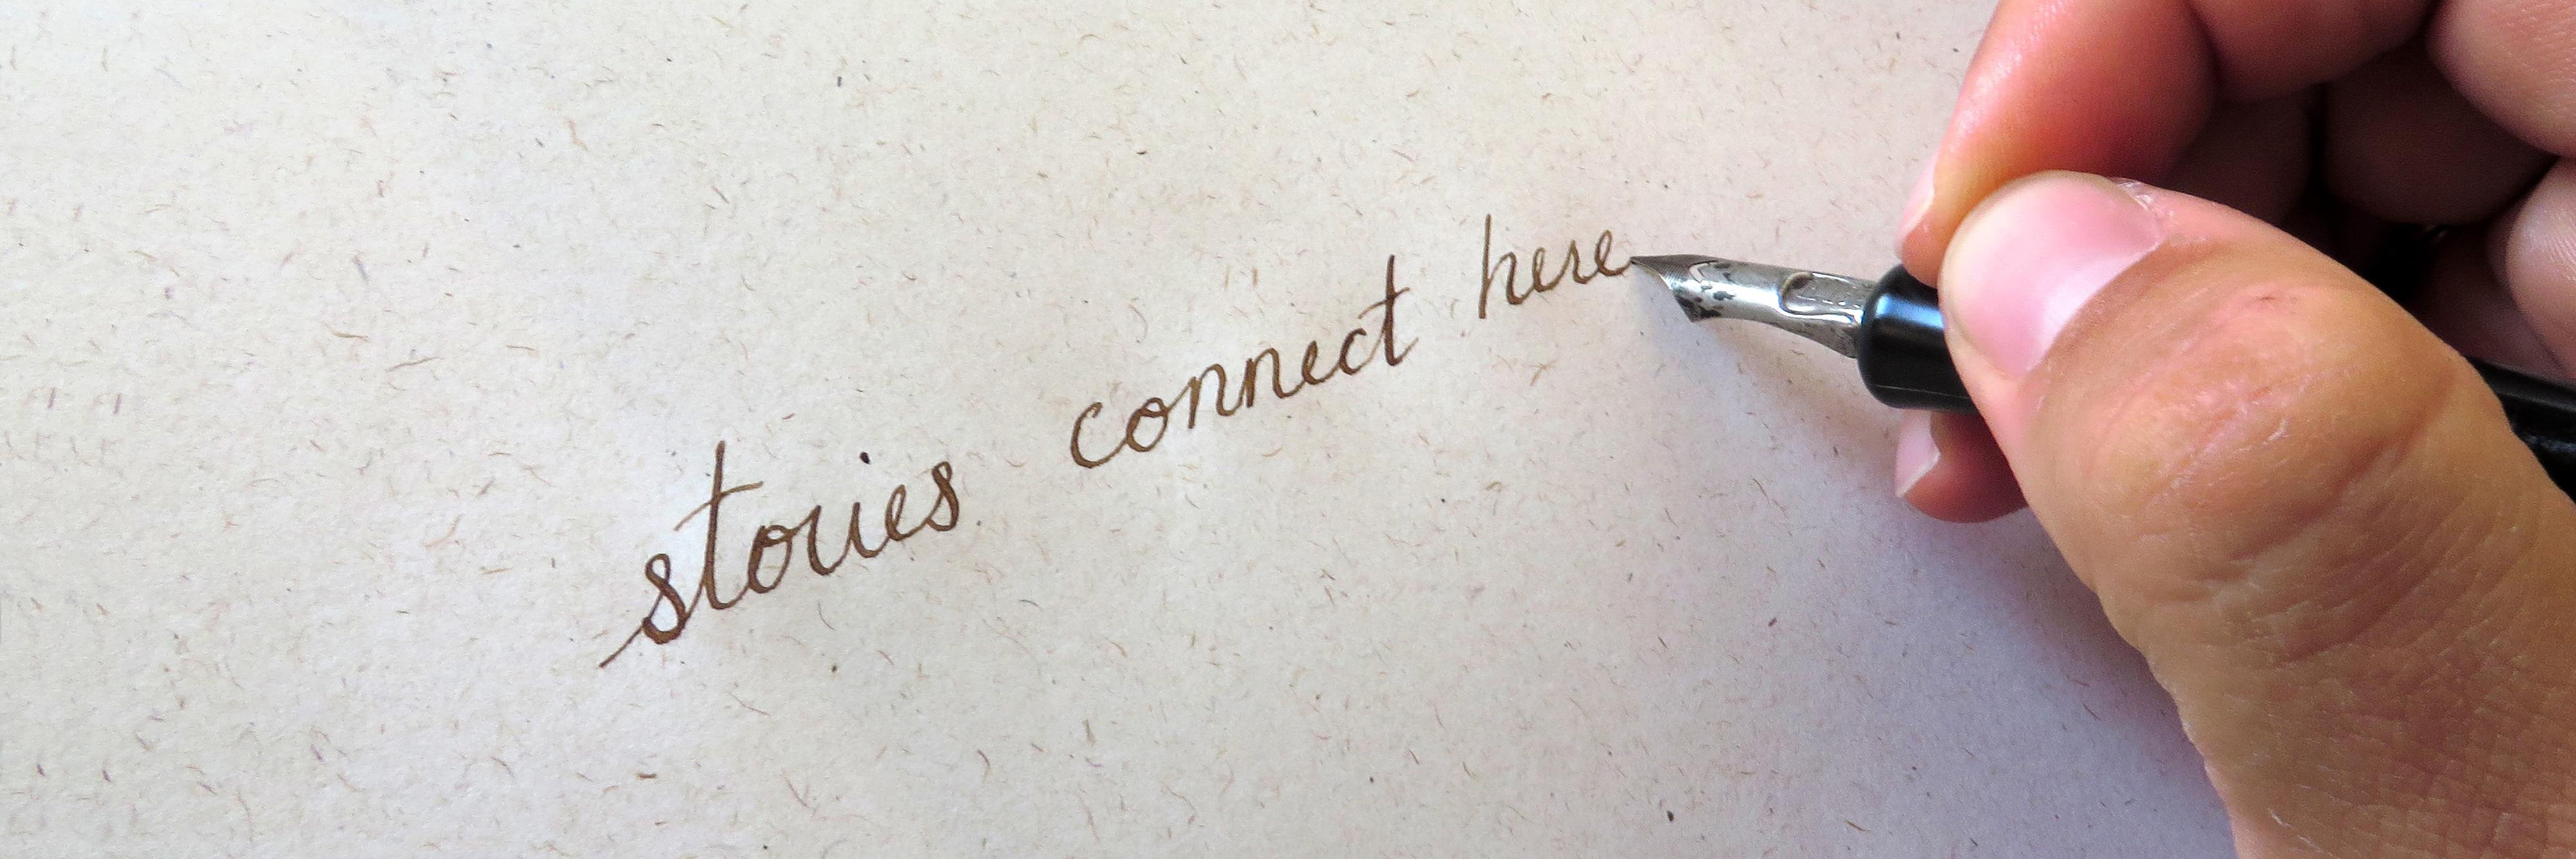 stories connect here